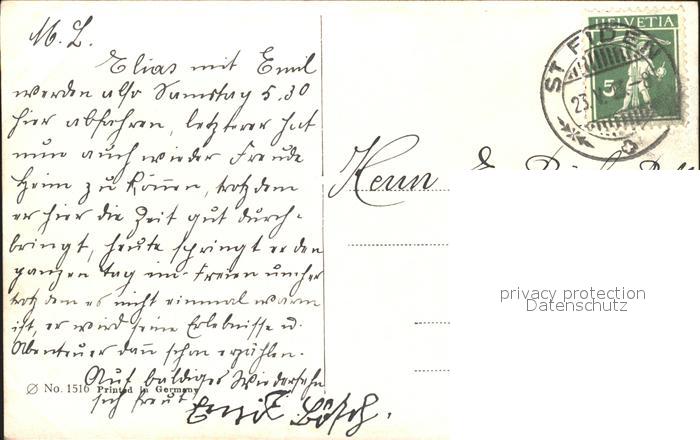 M. L.
Elias mit Emil
werden also Samstag 5.30
hier abfahren, letzterer hat
nun auch wieder Freude
heim zu können, trotzdem
er hier die Zeit gut durch-
bringt, heute springt er den
ganzen Tag im Freien umher
trotzdem es nicht einmal warm
ist, er wird seine Erlebnisse u.
Abenteuer dann schon erzählen.
Auf baldiges Wiedersehn
sich freut
Emil Bösch.
No. 1516 Printed in Germany
HELVETIA
5
ST. FIDEN
23.
Herrn
privacy protection
Datenschutz